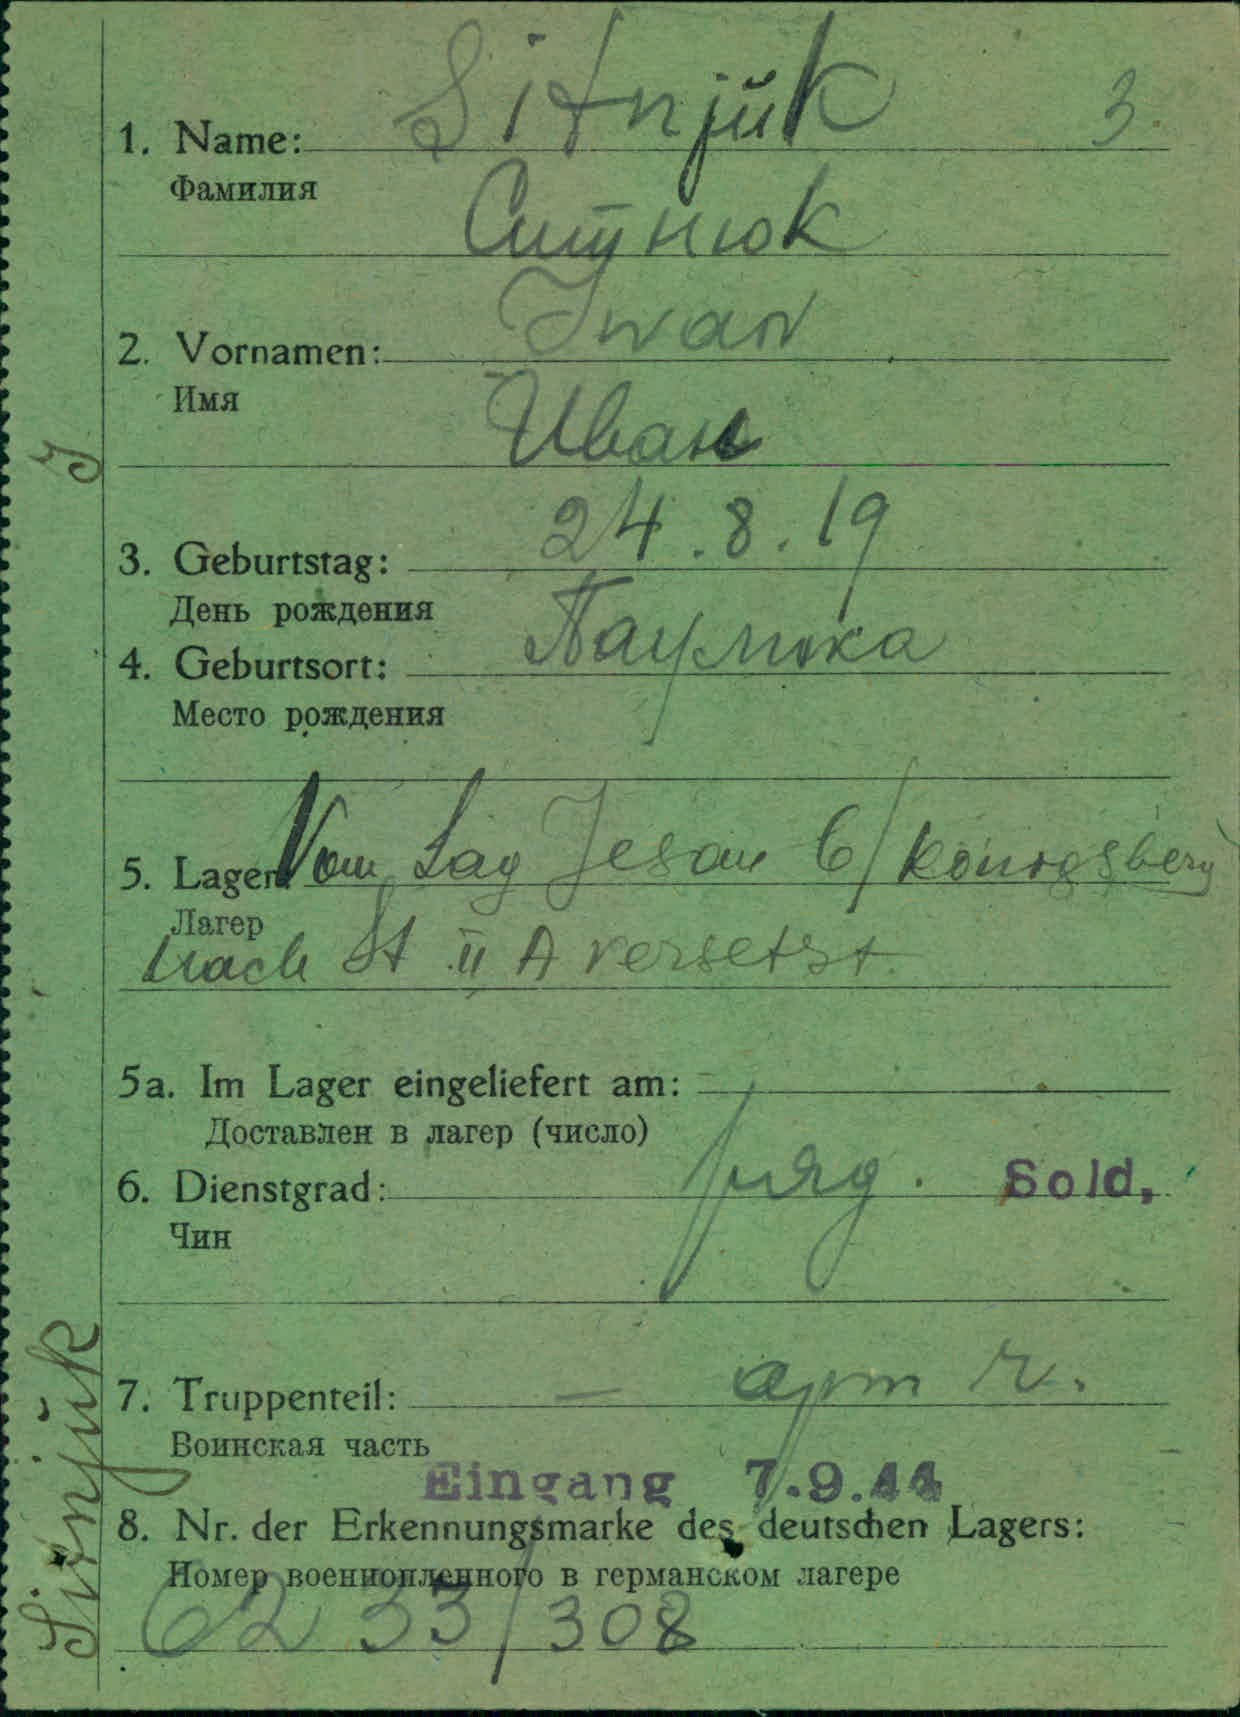 Sitnjŭk 3.
1. Name:
Фамилия
Ситнюк
Iwan
2. Vornamen:
Имя
Иван
3. Geburtstag: 24.8.19
День рождения
4. Geburtsort:
Место рождения
5. Lager: Vom Lag Jesau 6/Königsberg
Лагер
nach St II A versetzt.
5a. Im Lager eingeliefert am: –
Доставлен в лагер (число)
6. Dienstgrad: ряд. Sold.
Чин
7. Truppenteil: – арт
Воинская часть
Eingang 7.9.44
8. Nr. der Erkennungsmarke des deutschen Lagers:
Номер военнопленного в германском лагере
6233/308
Sitnjŭk J